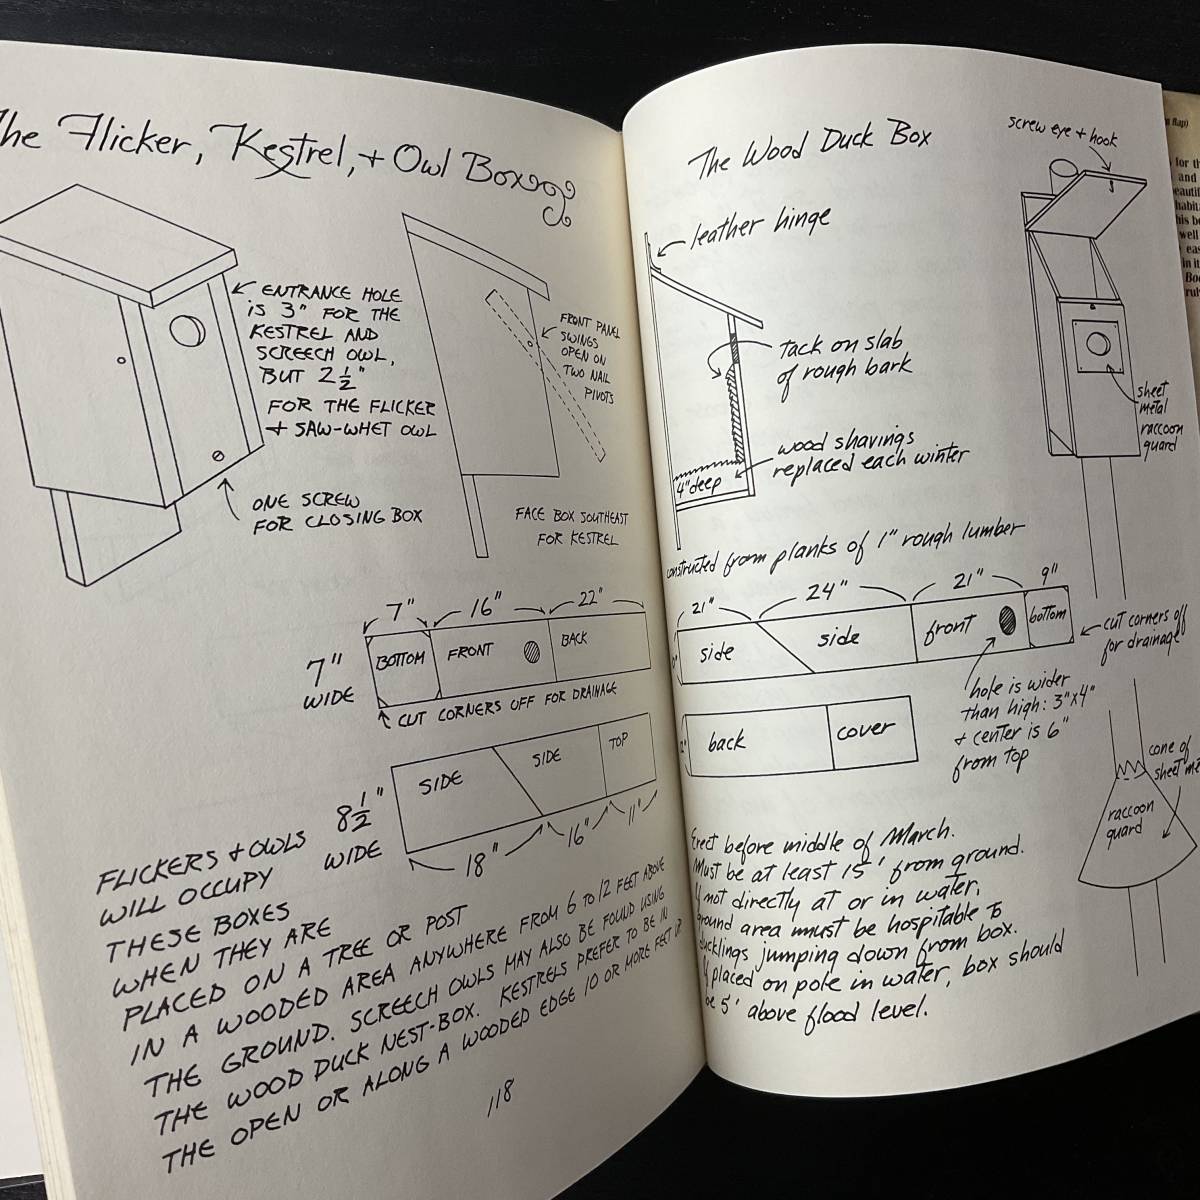 The Flicker, Kestrel, + Owl Box
ENTRANCE HOLE
IS 3" FOR THE
KESTREL AND
SCREECH OWL,
BUT 2 1/2"
FOR THE FLICKER
+ SAW-WHET OWL
ONE SCREW
FOR CLOSING BOX
FRONT PANEL
SWINGS
OPEN ON
TWO NAIL
PIVOTS
FACE BOX SOUTHEAST
FOR KESTREL
7"
16"
22"
7"
WIDE
BOTTOM
FRONT
BACK
CUT CORNERS OFF FOR DRAINAGE
8 1/2"
WIDE
SIDE
SIDE
TOP
18"
16"
11"
FLICKERS + OWLS
WILL OCCUPY
THESE BOXES
WHEN THEY ARE
PLACED ON A TREE OR POST
IN A WOODED AREA ANYWHERE FROM 6 TO 12 FEET ABOVE
THE GROUND. SCREECH OWLS MAY ALSO BE FOUND USING
THE WOOD DUCK NEST-BOX. KESTRELS PREFER TO BE IN
THE OPEN OR ALONG A WOODED EDGE 10 OR MORE FEET UP
118
The Wood Duck Box
screw eye + hook
leather hinge
tack on slab
of rough bark
wood shavings
replaced each winter
4" deep
sheet
metal
raccoon
guard
constructed from planks of 1" rough lumber
21"
24"
21"
9"
side
side
front
bottom
cut corners off
for drainage
hole is wider
than high: 3"x4"
+ center is 6"
from top
back
cover
cone of
sheet
raccoon
guard
Erect before middle of March.
Must be at least 15' from ground.
If not directly at or in water,
ground area must be hospitable to
ducklings jumping down from box.
If placed on pole in water, box should
be 5' above flood level.
flap)
for
and
well
in it